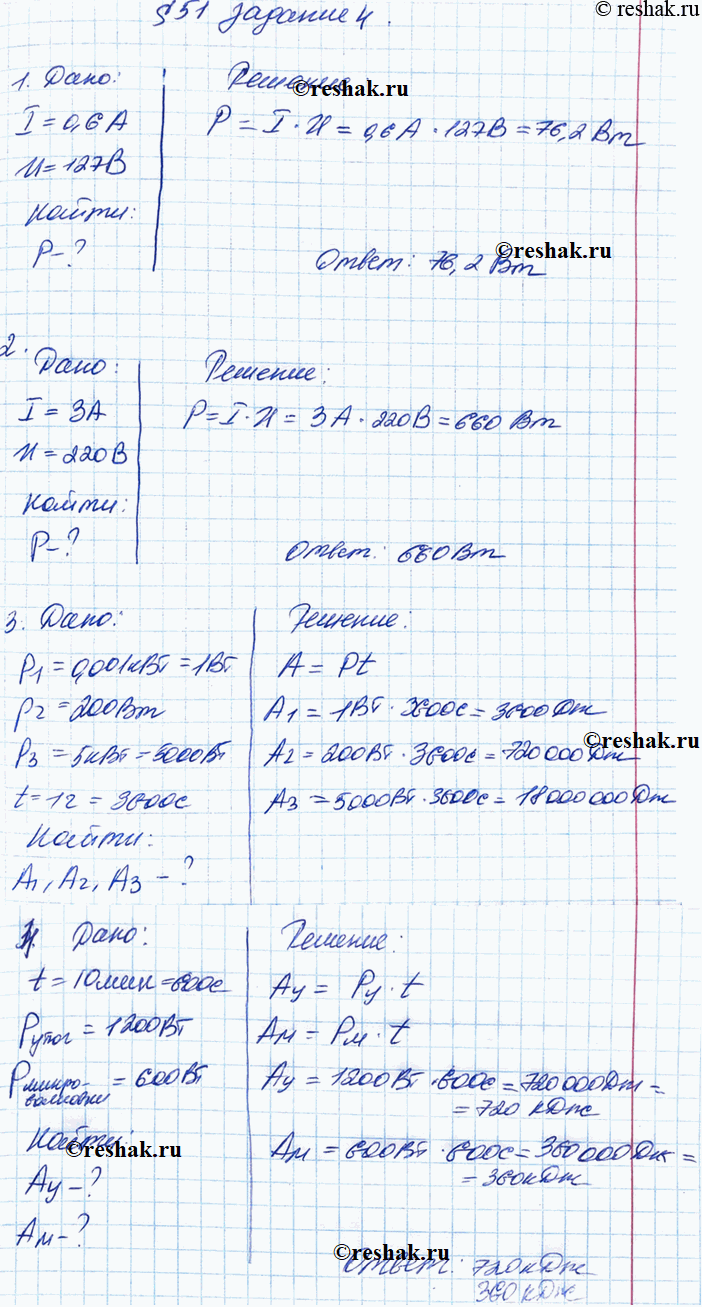 §51 Задание 4.
©reshak.ru
1. Дано:
I = 0,6 А
U = 127В
Найти:
P - ?
Решение:
©reshak.ru
P = I · U = 0,6 А · 127В = 76,2 Вт
©reshak.ru
Ответ: 76,2 Вт
2. Дано:
I = 3А
U = 220В
Найти:
P - ?
Решение:
P = I · U = 3А · 220В = 660 Вт
Ответ: 660 Вт
3. Дано:
P1 = 0,001кВт = 1Вт
P2 = 200Вт
P3 = 5кВт = 5000Вт
t = 1г = 3600с
Найти:
A1, A2, A3 - ?
Решение:
A = Pt
A1 = 1Вт · 3600с = 3600Дж
A2 = 200Вт · 3600с = 720 000Дж
©reshak.ru
A3 = 5000Вт · 3600с = 18 000 000Дж
4. Дано:
t = 10мин = 600с
Pутюг = 1200Вт
Pмикро-
волновки = 600Вт
Найти:
©reshak.ru
Aу - ?
Aм - ?
Решение:
Aу = Pу · t
Aм = Pм · t
Aу = 1200Вт · 600с = 720 000Дж =
= 720 кДж
Aм = 600Вт · 600с = 360 000Дж =
= 360кДж
©reshak.ru
Ответ: 720кДж
360 кДж